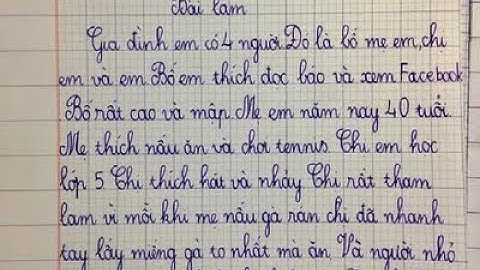 Bài làm
Gia đình em có 4 người. Đó là bố mẹ em, chị
em và em. Bố em thích đọc báo và xem Facebook
Bố rất cao và mập. Mẹ em năm nay 40 tuổi.
Mẹ thích nấu ăn và chơi tennis. Chị em học
lớp 5. Chị thích hát và nhảy. Chị rất tham
lam vì mỗi khi mẹ nấu gà rán chị đã nhanh
tay lấy miếng gà to nhất mà ăn. Và người nhỏ